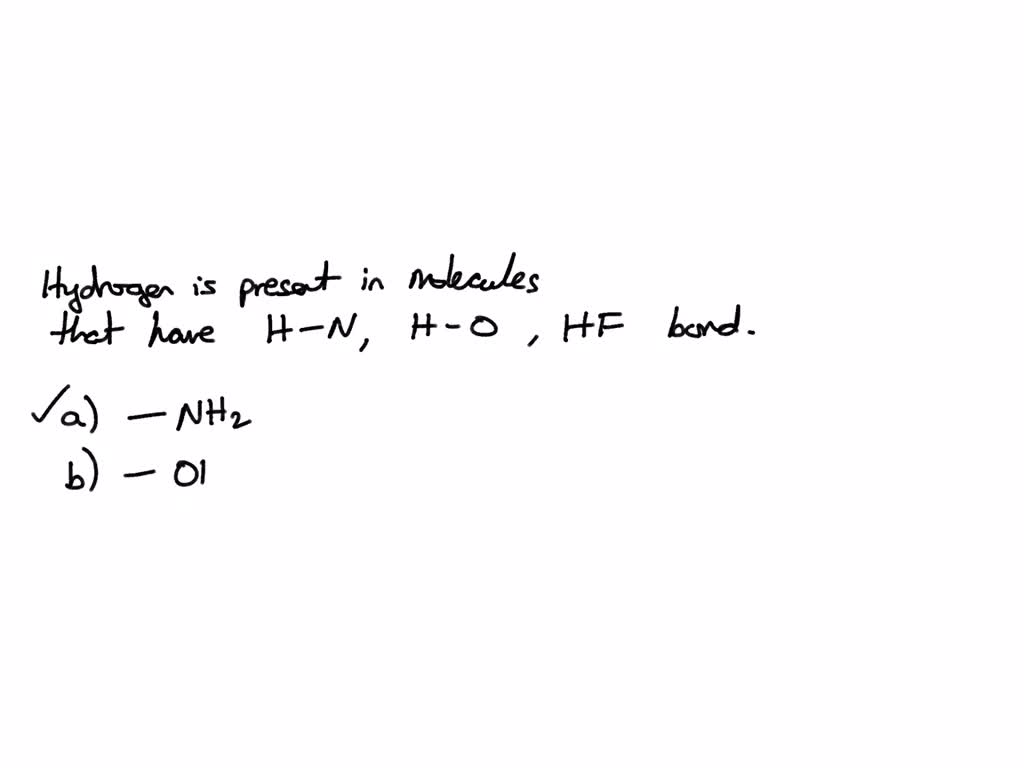 Hydrogen is present in molecules
that have H-N, H-O, HF bond.
✓a) - NH2
b) - OI